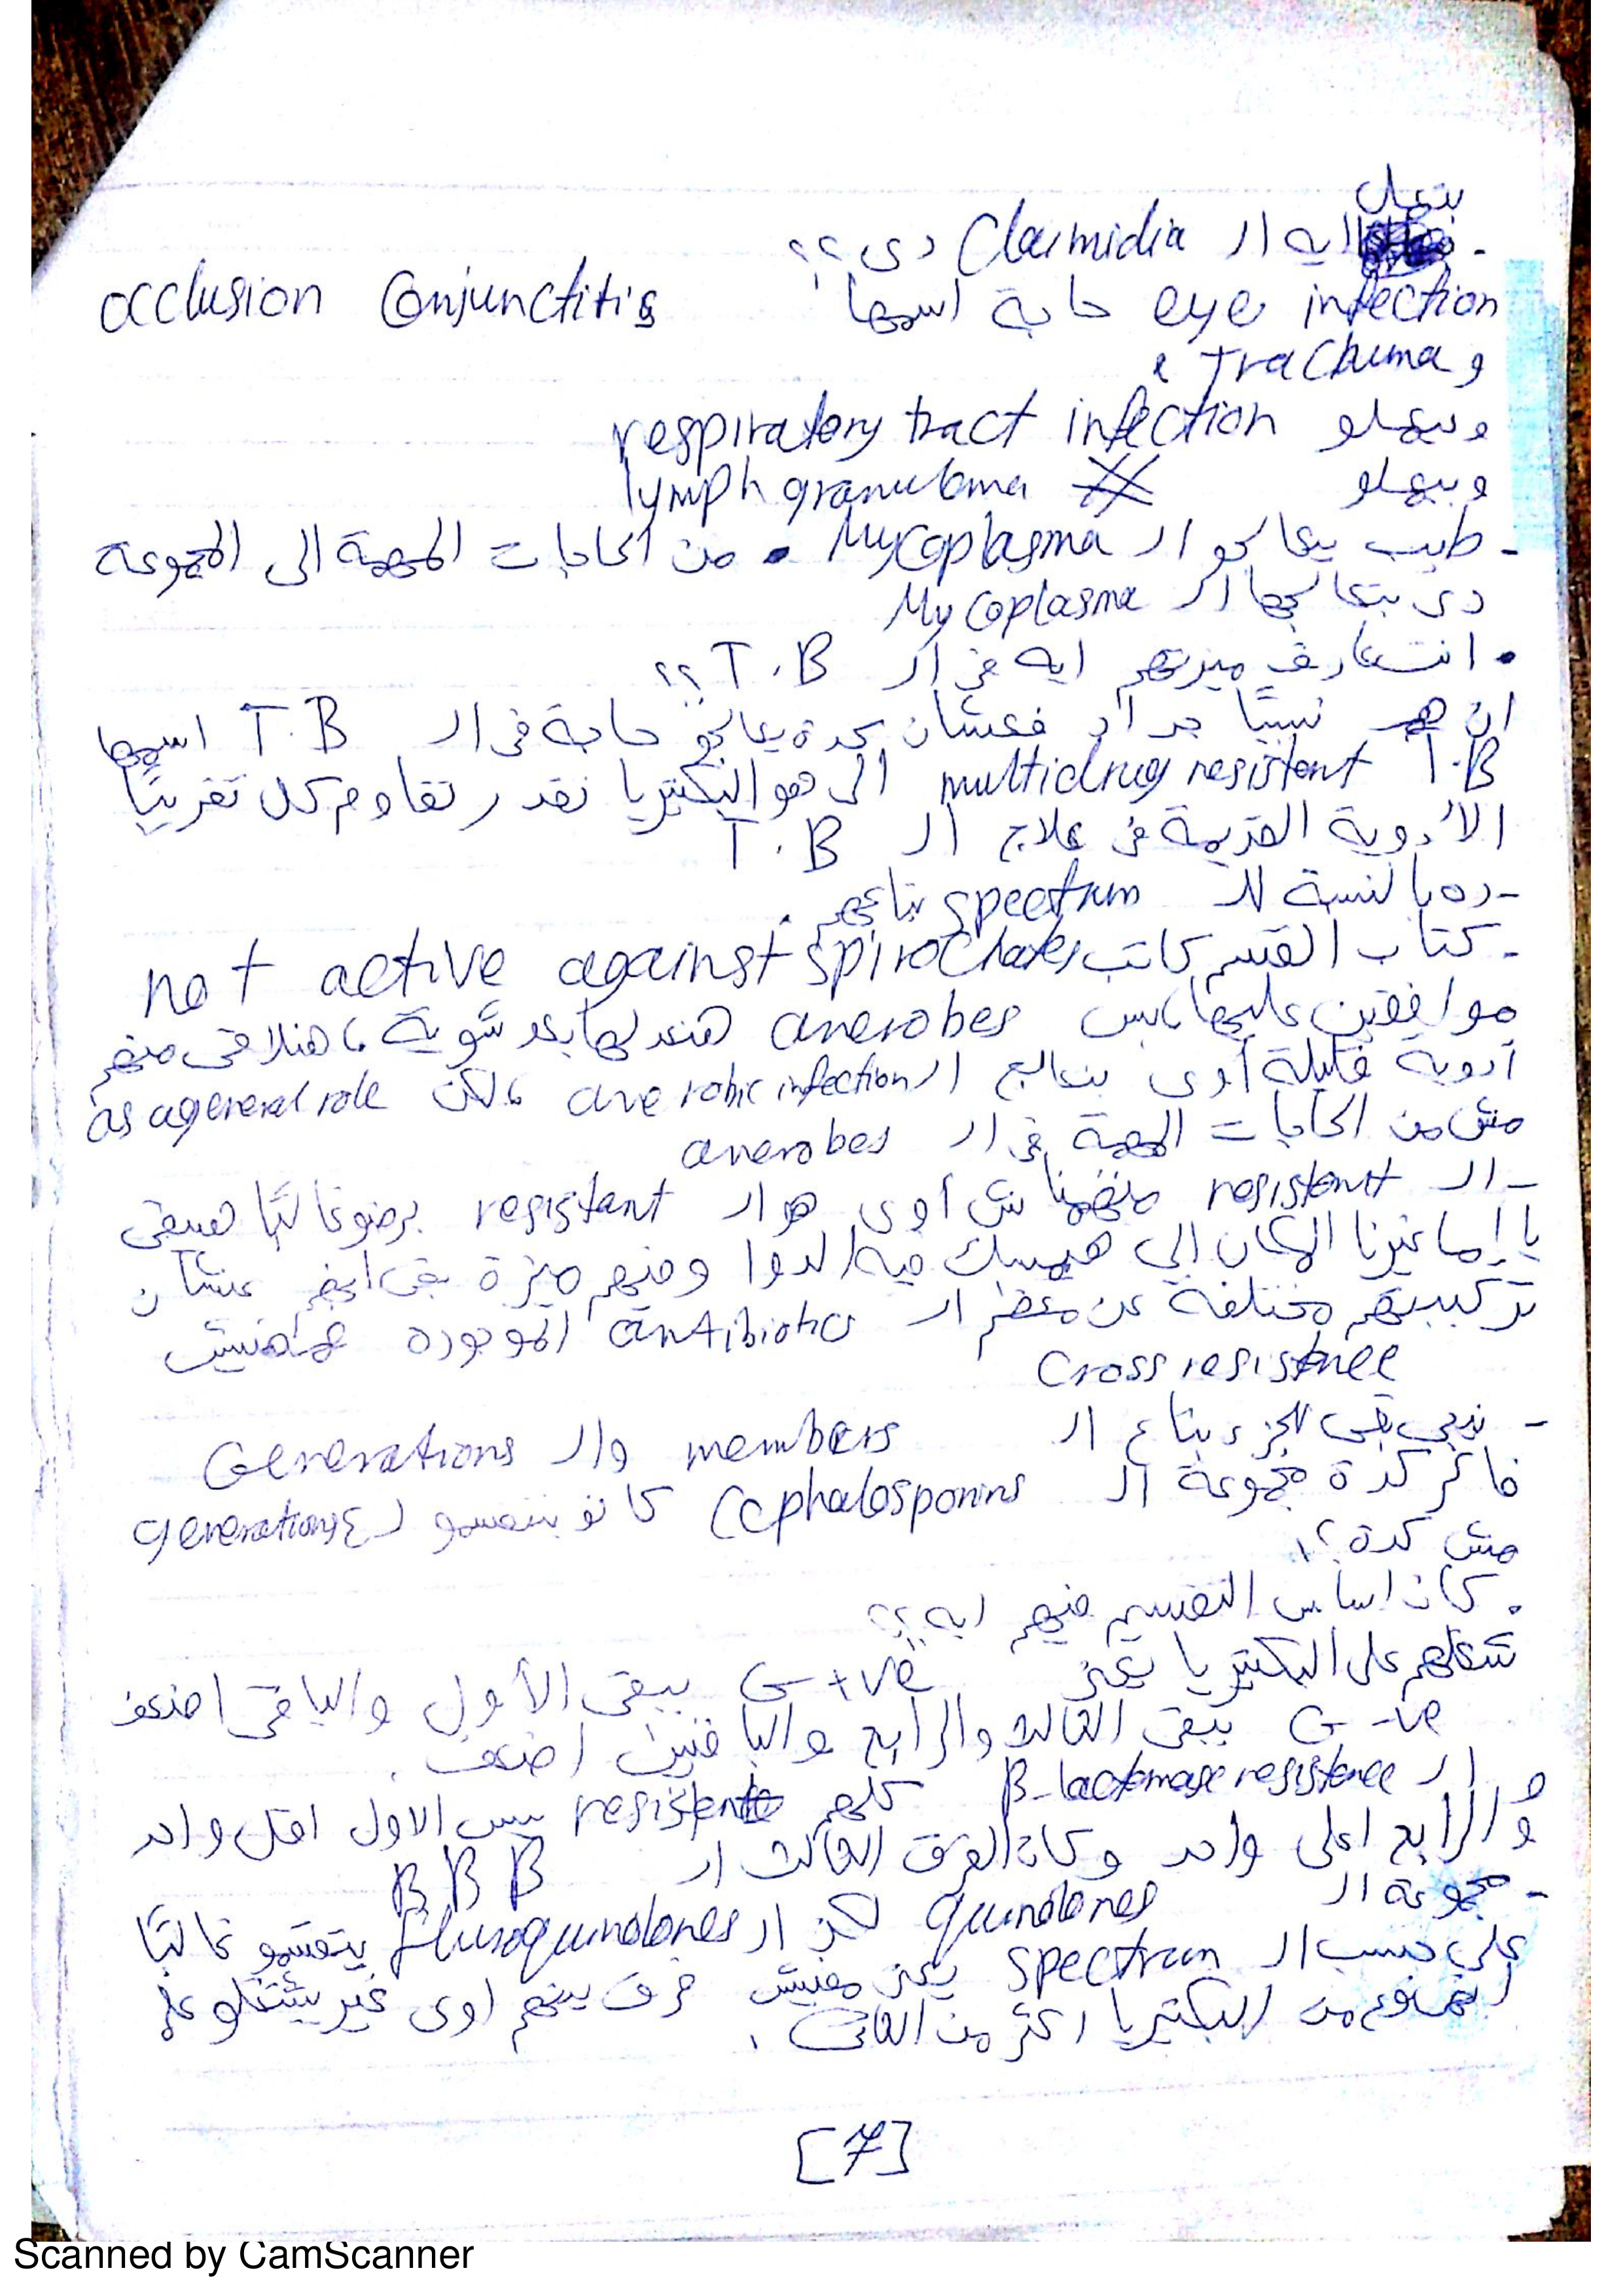 بتعمل
- ايه ال Claimidia دى ؟؟
eye infection حاجة اسمها occlusion Conjunctitis
و Trachuma
وبيعملو respiratory tract infection
وبيعملو lymph granuloma
- طيب بيعالجو ال Mycoplasma . من الحاجات المهمة الى المجموعة
دى بتعالجها ال Mycoplasma
. انت عارف ميزتهم ايه فى ال T.B ؟؟
ان هم نسبيًا جداد فعشان كدة يعالجو حاجة فى ال T.B اسمها
multidrug resistent T.B الى هو البكتيريا تقدر تقاوم كل تقريبًا
الأدوية القديمة فى علاج ال T.B
- ده بالنسبة لل spectrum بتاعهم .
- كتاب القسم كاتب not active against spirochates
موافقين عليها، بس anerobes هنعدلها بعد شوية ، هنلاقى منهم
أدوية قليلة أوى بتعالج ال anerobic infection ، لكن as ageneral role
مش من الحاجات المهمة فى ال anerobes
- ال resistent منفهمناش أوى هو ال resistant برضو غالبًا هيبقى
يا إما غيرنا المكان إلي هيمسك فيه الدوا وفيهم ميزة بقى ايضر عشان
تركيبتهم مختلفة عن معظم ال antibiotics الموجودة مفيش
Cross resistence
- نيجي بقى للجزء بتاع ال members وال Generations
فاكر كدة مجموعة ال Cephalosporins كانو بيتقسمو ل ٤ generations
مش كدة ؟
. كان اساس التقسيم فيهم ايه ؟؟
شغلهم على البكتيريا يعنى G +ve يبقى الأول والباقى اضعف
G -ve يبقى الثالث والرابع والباقيين اضعف .
ال B-lactamase resistence كلهم resistent بس الاول اقل واحد
و الرابع اعلى واحد وكان الفرق الثالث ال B B B
- مجموعة ال quinolones لكن ال fluroquinolones بيتقسمو غالبًا
على حسب ال spectrum يعنى مفيش فرق بينهم اوى غير بيشتغلو على
انهى نوع من البكتيريا اكثر من الثانى .
[7]
Scanned by CamScanner